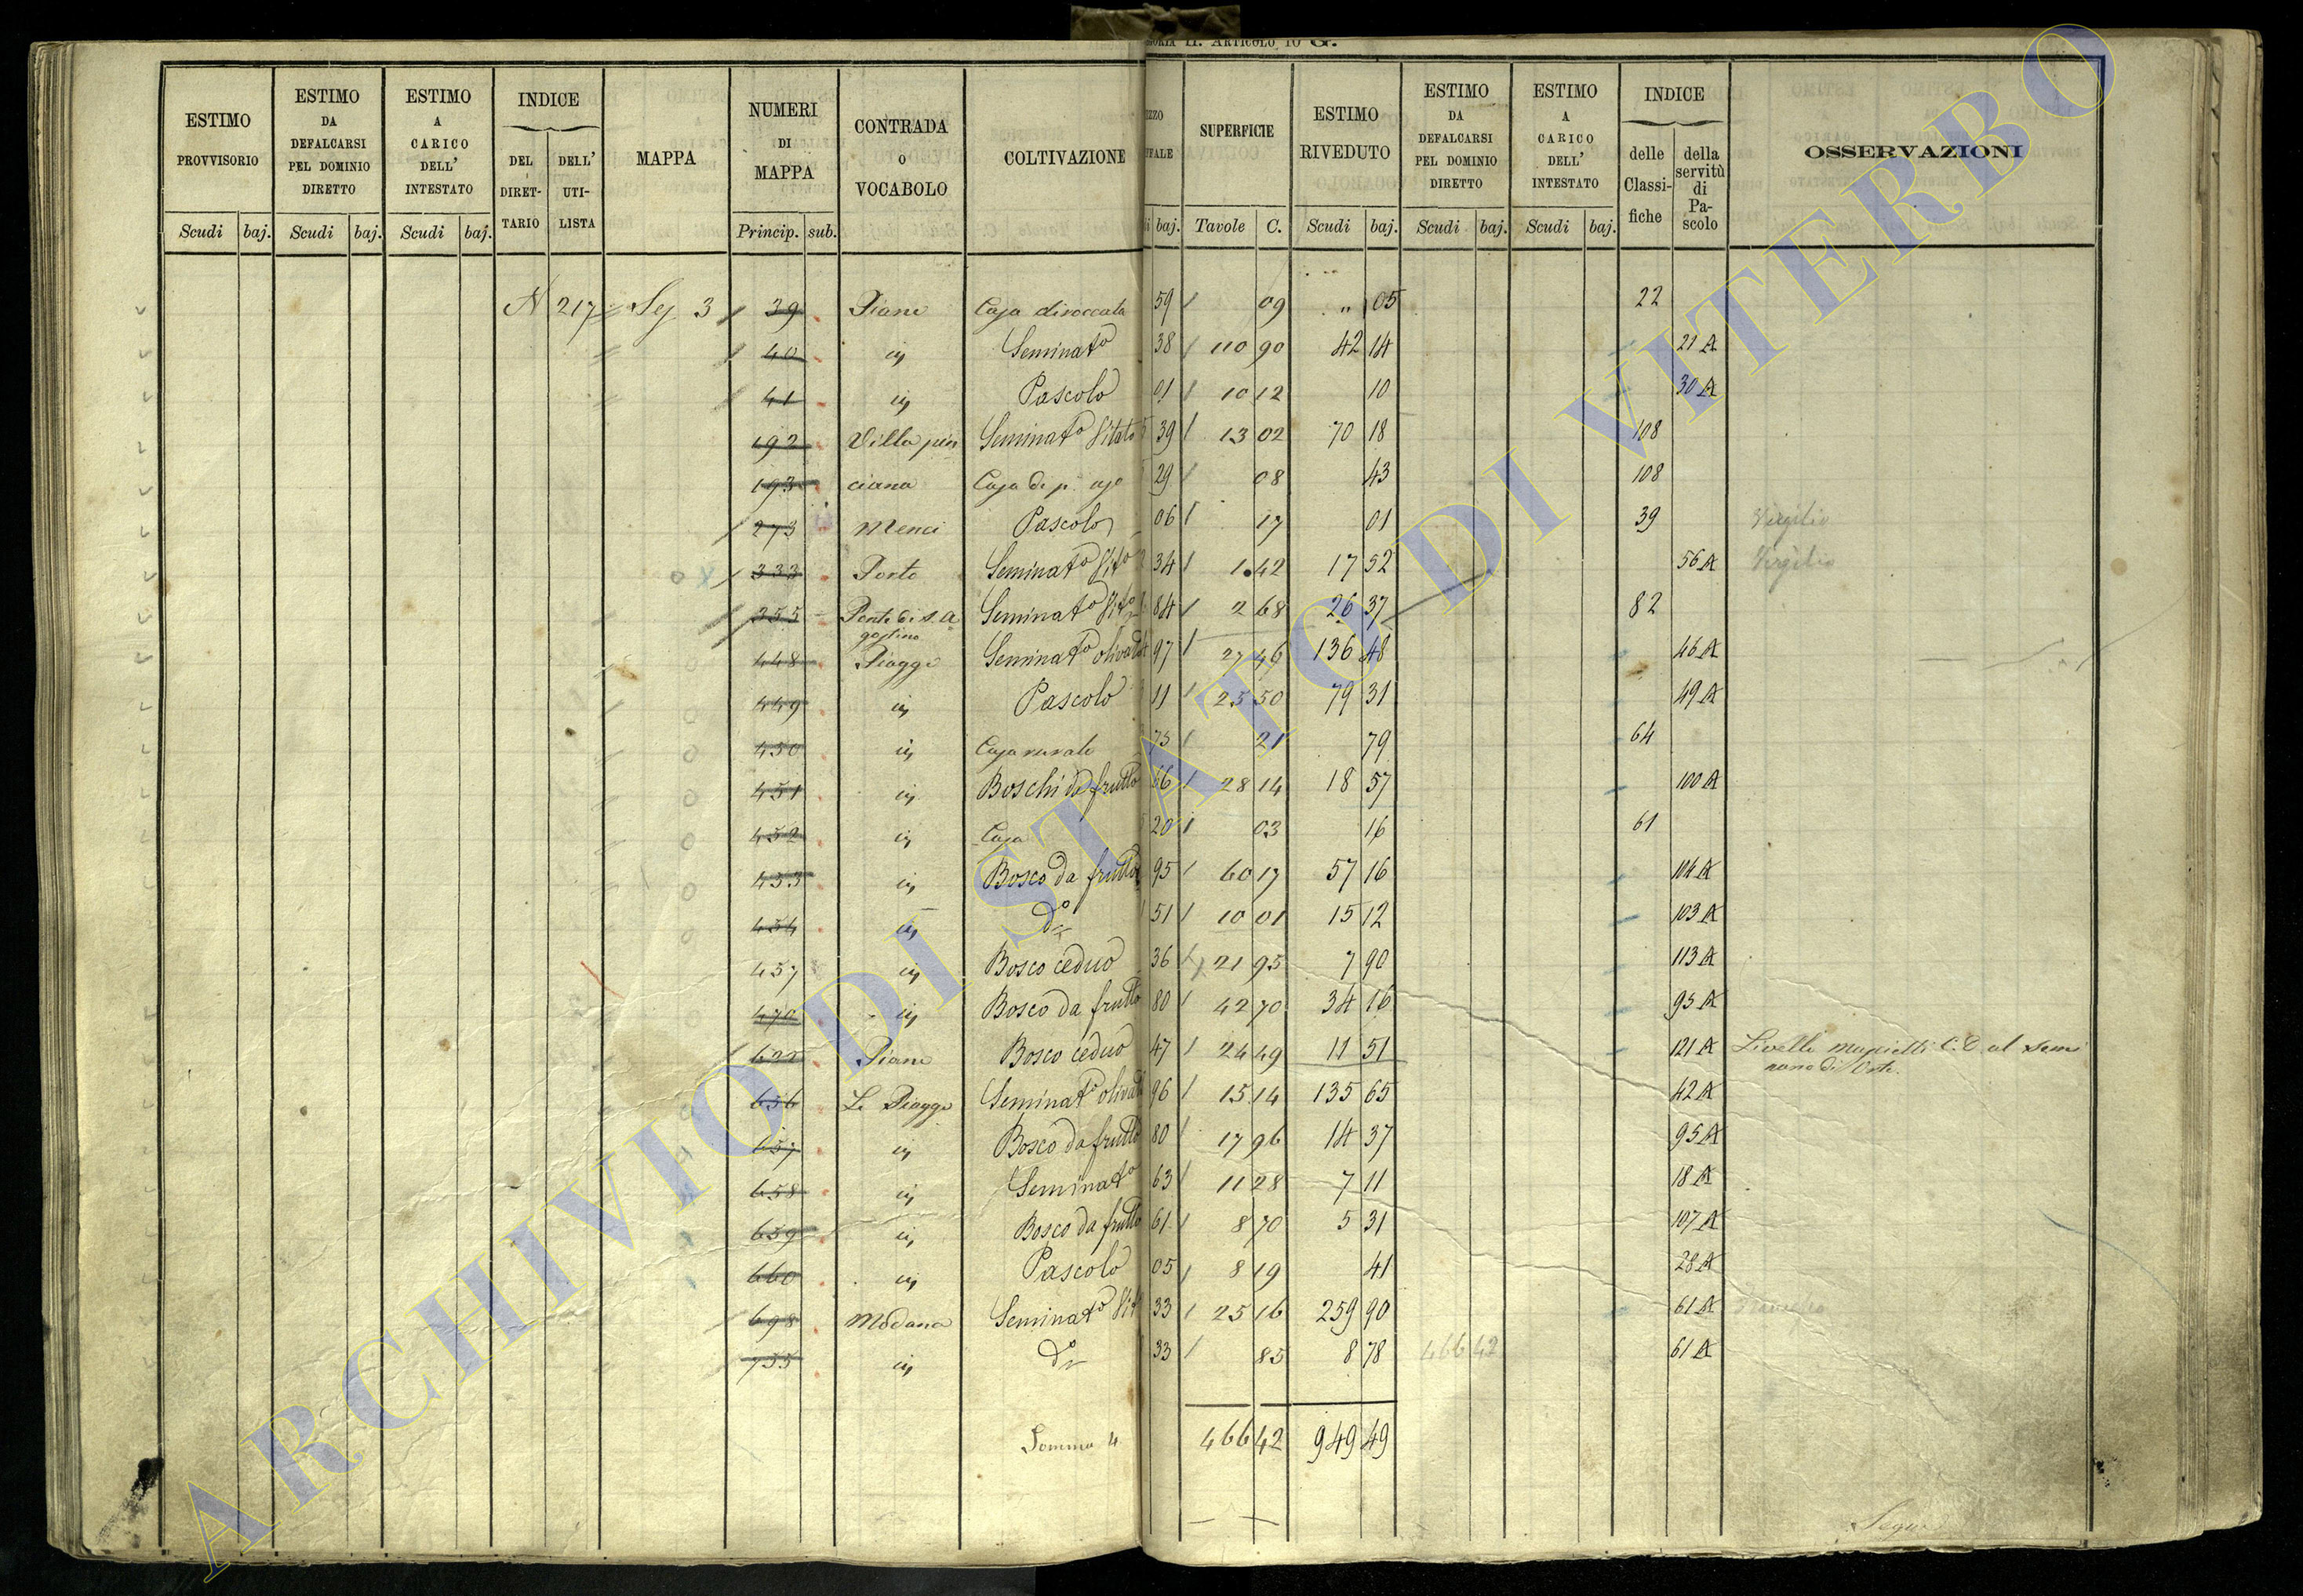 SORIA II. ARTICOLO 10 G.
ESTIMO PROVVISORIO
ESTIMO DA DEFALCARSI PEL DOMINIO DIRETTO
ESTIMO A CARICO DELL' INTESTATO
INDICE
DEL DIRET-TARIO DELL' UTI-LISTA
MAPPA
NUMERI DI MAPPA
CONTRADA O VOCABOLO
COLTIVAZIONE
SUPERFICIE
ESTIMO RIVEDUTO
ESTIMO DA DEFALCARSI PEL DOMINIO DIRETTO
ESTIMO A CARICO DELL' INTESTATO
INDICE
delle Classi-fiche della servitù di Pa-scolo
OSSERVAZIONI
Scudi baj. Scudi baj. Scudi baj. Princip. sub. baj. Tavole C. Scudi baj. Scudi baj. Scudi baj.
N 217 Sez 3 39 Piane Casa diroccata 59 09 " 05 22
40 id Seminato 38 110 90 42 14 21 A
41 id Pascolo 01 10 12 10 30 A
192 Villa pin Seminato Vitato 39 13 02 70 18 108
193 ciana Casa di p. uso 29 08 43 108
273 Menci Pascolo 06 17 01 39 Virgilio
333 Porto Seminato Vito 34 1 42 17 52 56 A Virgilio
355 Ponte di S. A Seminato Vito 84 2 68 26 37 82
gostino
448 Piagge Seminato olivato 97 27 46 136 48 46 A
449 id Pascolo 11 25 50 79 31 49 A
450 id Casa rurale 75 21 79 64
451 id Boschi da frutto 66 28 14 18 57 100 A
452 id Casa 20 03 16 61
453 id Bosco da frutto 95 60 17 57 16 104 A
454 id do 51 10 01 15 12 103 A
457 id Bosco ceduo 36 21 95 7 90 113 A
470 id Bosco da frutto 80 42 70 34 16 95 A
622 Piane Bosco ceduo 47 24 49 11 51 121 A Livelli al Semi
nario di Orte.
656 Le Piagge Seminato olivato 96 15 14 135 65 42 A
657 id Bosco da frutto 80 17 96 14 37 95 A
658 id Seminato 63 11 28 7 11 18 A
659 id Bosco da frutto 61 8 70 5 31 107 A
660 id Pascolo 05 8 19 41 28 A
698 Modana Seminato Vito 33 25 16 259 90 61 A
755 id do 33 85 8 78 466 42 61 A
Somma 466 42 949 49
Segue
ARCHIVIO DI STATO DI VITERBO